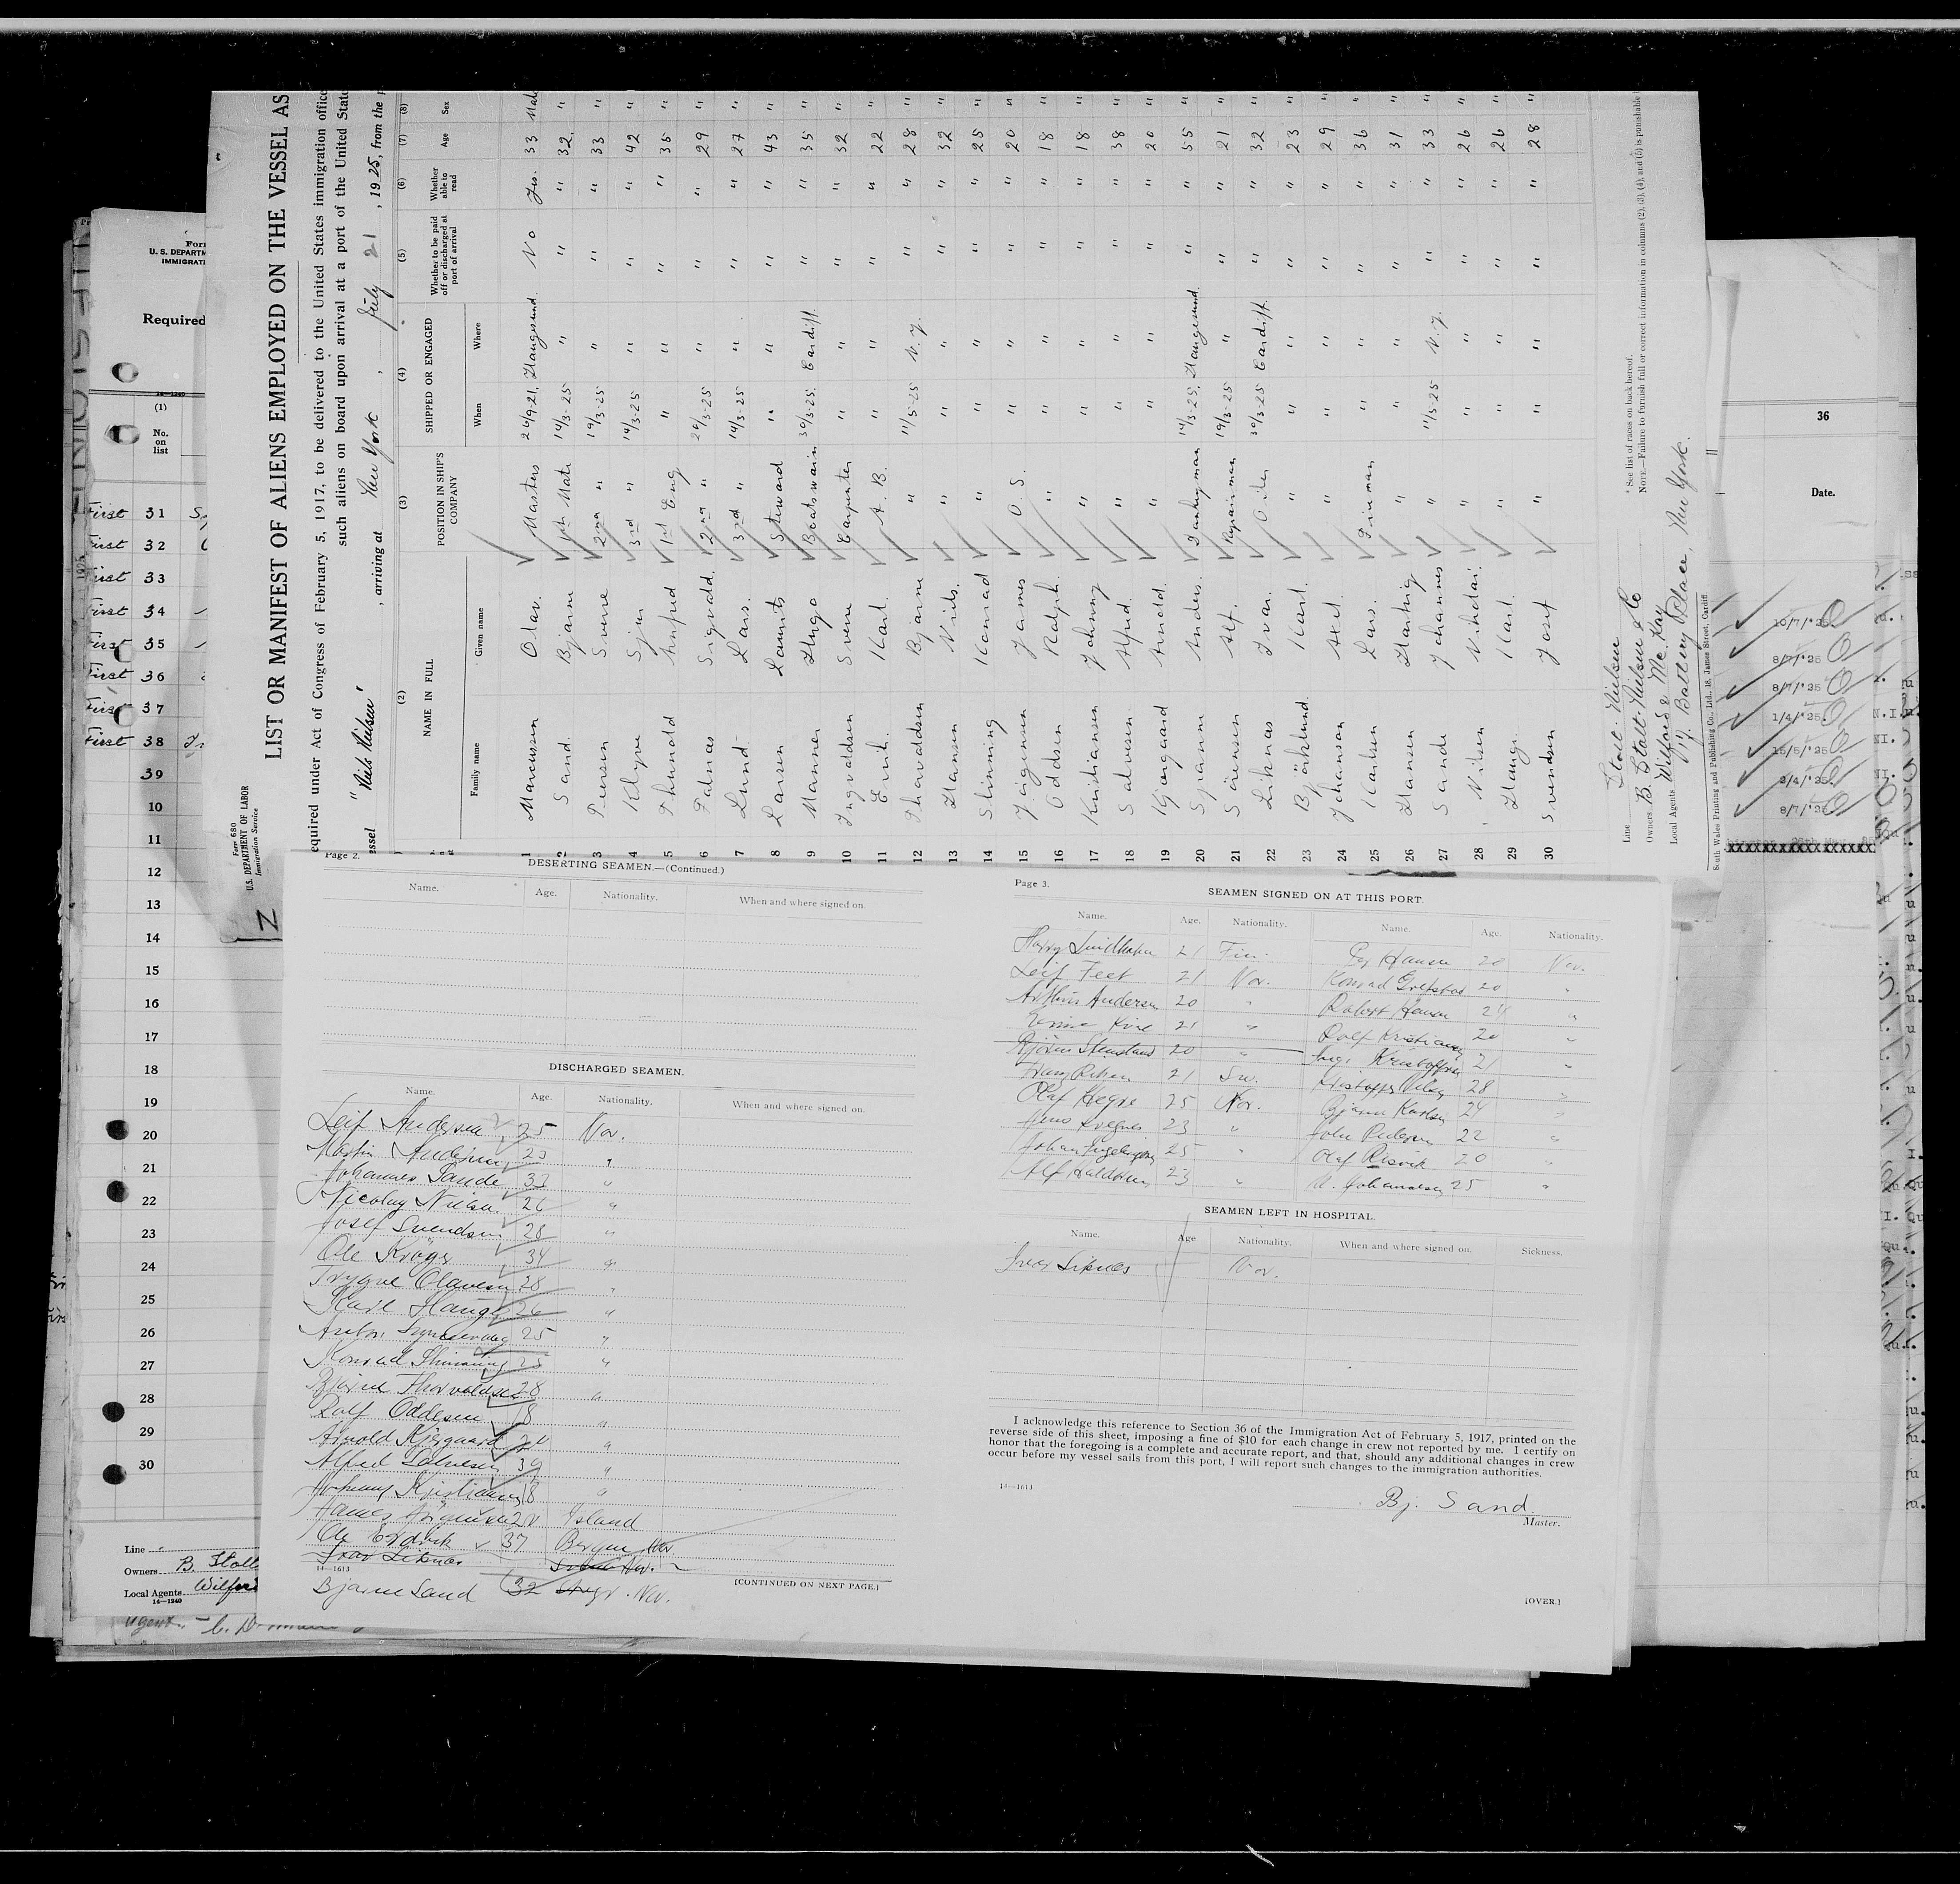 Form 680
U.S. DEPARTMENT OF LABOR
Immigration Service
LIST OR MANIFEST OF ALIENS EMPLOYED ON THE VESSEL AS
equired under Act of Congress of February 5, 1917, to be delivered to the United States immigration office
such aliens on board upon arrival at a port of the United State
essel "Niels Nielsen", arriving at New York, July 21, 1925, from the
(2) (3) (4) (5) (6) (7) (8)
NAME IN FULL POSITION IN SHIP'S COMPANY SHIPPED OR ENGAGED Whether to be paid off or discharged at port of arrival Whether able to read Age Sex
Family name Given name When Where
1 Marcussen Olav. Masters 26/9-21. Haugesund. No Yes. 33 Male
2 Sand. Bjarne 1st Mate 14/3-25 " " " 32 "
3 Iversen Sverre 2nd " 19/3-25 " " " 33 "
4 Klyve Sjur 3rd " 14/3-25 " " 42 "
5 1st Eng " " " " 35 "
6 Sigvald. 2nd " " " " 29 "
7 Lund Lars. 3rd " 14/3-25 " " " 27 "
8 Larsen Laurits Steward " " " " 43 "
9 Manner Hugo Boatswain 30/3-25. Cardiff. " " 35 "
10 Ingvaldsen Sverre Carpenter " " " " 32 "
11 Karl. A.B. " " " " 22 "
12 Thorvaldsen Bjarne " 11/5-25 N.Y. " " 28 "
13 Hansen Nils. " " " " " 32 "
14 Skinning Konrad " " " " " 25 "
15 Jörgensen James O.S. " " " " 20 "
16 Oddsen Ralph. " " " " " 18 "
17 Kristiansen Johnny " " " " " 18 "
18 Salvesen Alfred. " " " " " 38 "
19 Kjergaard Arnold. " " " " " 20 "
20 Anders. Donkeyman 14/3-25. Haugesund. " " 55 "
21 Sörensen Alf. Repairman 19/3-25 " " " 21 "
22 Liknas Ivar. Oiler 30/3-25 Cardiff. " " 32 "
23 Björklund. Karl " " " " " 23 "
24 Johanson Axel. " " " " " 29 "
25 Karlsen Lars. Fireman " " " " 36 "
26 Hansen Hartvig " " " " " 31 "
27 Sande Johannes " 11/5-25 N.Y. " " 33 "
28 Nilsen Nikolai. " " " " " 26 "
29 Hauge Karl. " " " " " 26 "
30 Svendsen Josef " " " " " 28 "
Line Stolt-Nielsen
Owners B. Stolt-Nielsen & Co
Local Agents Wilford & McKay
17. Battery Place, New York.
* See list of races on back hereof.
NOTE.—Failure to furnish full or correct information in columns (2), (3), (4), and (5) is punishable
South Wales Printing and Publishing Co., Ltd., 18, James Street, Cardiff.
U. S. DEPARTM
IMMIGRATI
Required
14—1240
(1)
No. on list
First 31
First 32
First 33
First 34
First 35
First 36
First 37
First 38
39
10
11
12
13
14
15
16
17
18
19
20
21
22
23
24
25
26
27
28
29
30
Line
Owners B. Stolt
Local Agents Wilfor
14—1240
36
Date.
10/7/'25
8/7/'25
8/7/'25
1/4/'25
15/5/'25
2/4/'25
8/7/'25
Page 2.
DESERTING SEAMEN.—(Continued.)
Name. Age. Nationality. When and where signed on.
DISCHARGED SEAMEN.
Name. Age. Nationality. When and where signed on.
Leif Andersen 25 Nor.
Martin Andersen 23 "
Johannes Sande 33 "
Nicolay Nielsen 26 "
Josef Svendsen 28 "
Ole Kröger 34 "
Trygve Olavesen 28 "
Karl Hauge 26 "
Anton 25 "
Konrad Skinning 25 "
Bjarne Thorvaldsen 28 "
Rolf Oddesen 18 "
Arnold Kjergaard 20 "
Alfred Salvesen 39 "
Johnny Kristiansen 18 "
James Jörgensen 20 Island
Ole 37 Bergen Nor.
Ivar Liknas
14—1613
Bjarne Sand 32 Nor.
[CONTINUED ON NEXT PAGE.]
Page 3.
SEAMEN SIGNED ON AT THIS PORT.
Name. Age. Nationality. Name. Age. Nationality.
Harry Lindholm 21 Fin. Hansen 20 Nor.
Leif Feet 21 Nor. Konrad 20 "
Arthur Andersen 20 " Robert Hansen 21 "
21 " Rolf Kristiansen 20 "
Björn 20 " Kristoffersen 21 "
21 Sw. 28 "
Olaf Hegre 25 Nor. Bjarne Karlsen 24 "
Jens 23 " John Pedersen 22 "
Johan 25 " Olaf Risvik 20 "
Alf 23 " Johannesen 25 "
SEAMEN LEFT IN HOSPITAL.
Name. Age Nationality. When and where signed on. Sickness.
Ivar Liknes Nor.
I acknowledge this reference to Section 36 of the Immigration Act of February 5, 1917, printed on the
reverse side of this sheet, imposing a fine of $10 for each change in crew not reported by me. I certify on
honor that the foregoing is a complete and accurate report, and that, should any additional changes in crew
occur before my vessel sails from this port, I will report such changes to the immigration authorities.
14—1613
Bj. Sand.
Master.
[OVER.]